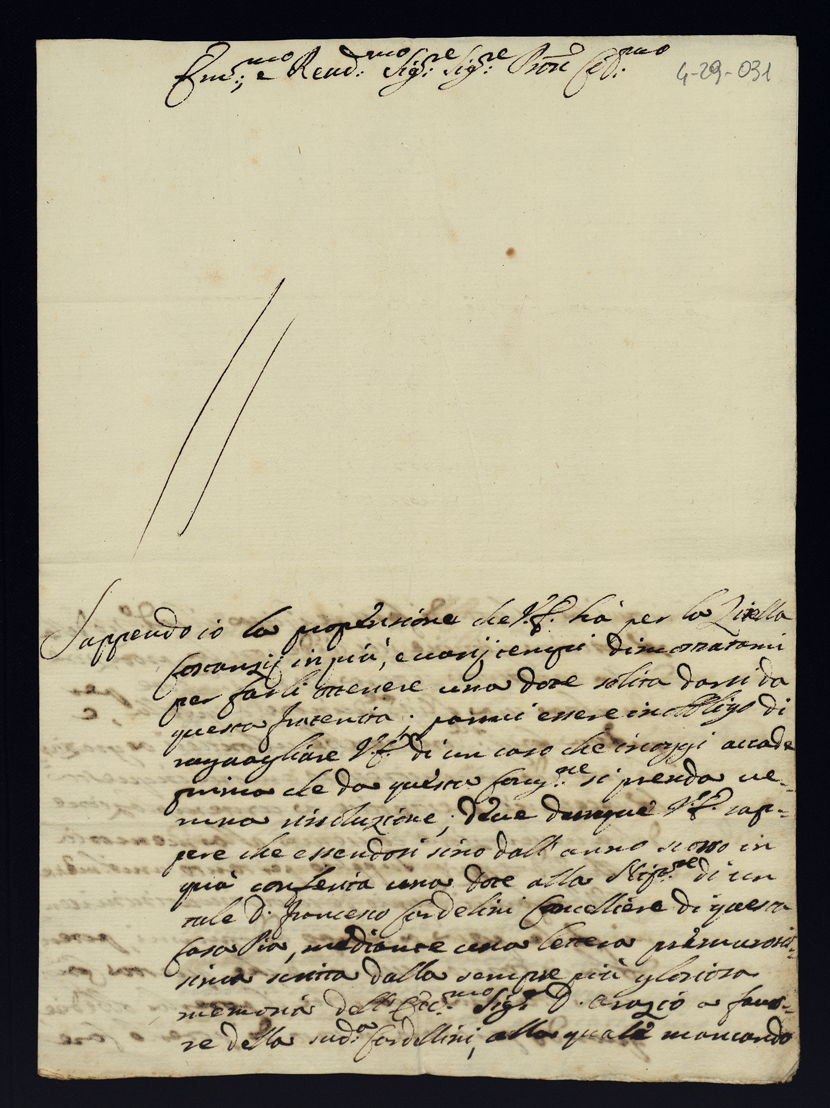 Em.mo, e Rend.mo Sig.re Sig.re Pron Col.mo
4-29-031
Sappendo io la propensione che V.E. hà per la Zitella
Costanzij in più, e varij tempi dimostratami
per farli ottenere una dote solita darsi da
questa fraternita; parmi essere in obligo di
ragguagliare V.E. di un caso che in oggi accade
prima che da questa Cong.ne si prenda ve-
runa rissoluzione; deve dunque V.E. sap-
pere che essendosi sino dall'anno scorso in
quà conferita una dote alla Nip.te di un
tale D. Francesco Cardelini Cancelliere di questa
Casa Pia, mediante una lettera premurosis-
sima scritta dalla sempre più gloriosa
memoria dell'Ecc.mo Sig.r D. Orazio a favo-
re della sud.a Cardellini, alla quale mancando